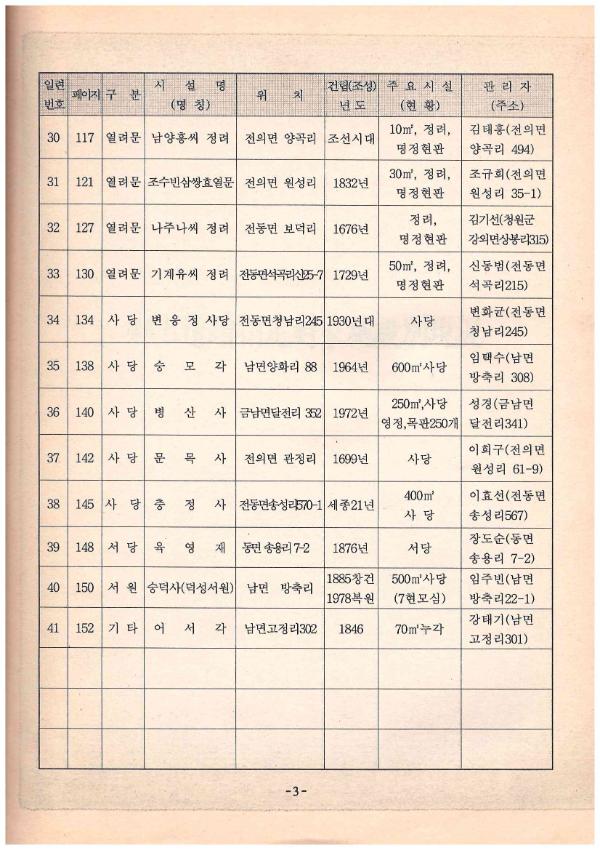 일련 번호 페이지 구 분 시 설 명 (명 칭) 위 치 건립(조성) 년 도 주 요 시 설 (현 황) 관 리 자 (주소)
30 117 열려문 남양홍씨 정려 전의면 양곡리 조선시대 10㎡, 정려, 명정현판 김태흥(전의면 양곡리 494)
31 121 열려문 조수빈삼쌍효열문 전의면 원성리 1832년 30㎡, 정려, 명정현판 조규희(전의면 원성리 35-1)
32 127 열려문 나주나씨 정려 전동면 보덕리 1676년 정려, 명정현판 김기선(청원군 강외면상봉리315)
33 130 열려문 기계유씨 정려 전동면석곡리산25-7 1729년 50㎡, 정려, 명정현판 신동범(전동면 석곡리215)
34 134 사 당 변 웅 정 사당 전동면청남리245 1930년대 사당 변화균(전동면 청남리245)
35 138 사당 숭 모 각 남면양화리 88 1964년 600㎡사당 임택수(남면 방축리 308)
36 140 사당 병 산 사 금남면달전리 352 1972년 250㎡,사당 영정,목판250개 성경(금남면 달전리341)
37 142 사당 문 목 사 전의면 관정리 1699년 사당 이희구(전의면 원성리 61-9)
38 145 사 당 충 정 사 전동면송성리570-1 세종21년 400㎡ 사 당 이효선(전동면 송성리567)
39 148 서당 육 영 재 동면 송용리 7-2 1876년 서당 장도순(동면 송용리 7-2)
40 150 서 원 숭덕사(덕성서원) 남면 방축리 1885창건 1978복원 500㎡사당 (7현모심) 임주빈(남면 방축리22-1)
41 152 기 타 어 서 각 남면고정리302 1846 70㎡누각 강태기(남면 고정리301)
-3-